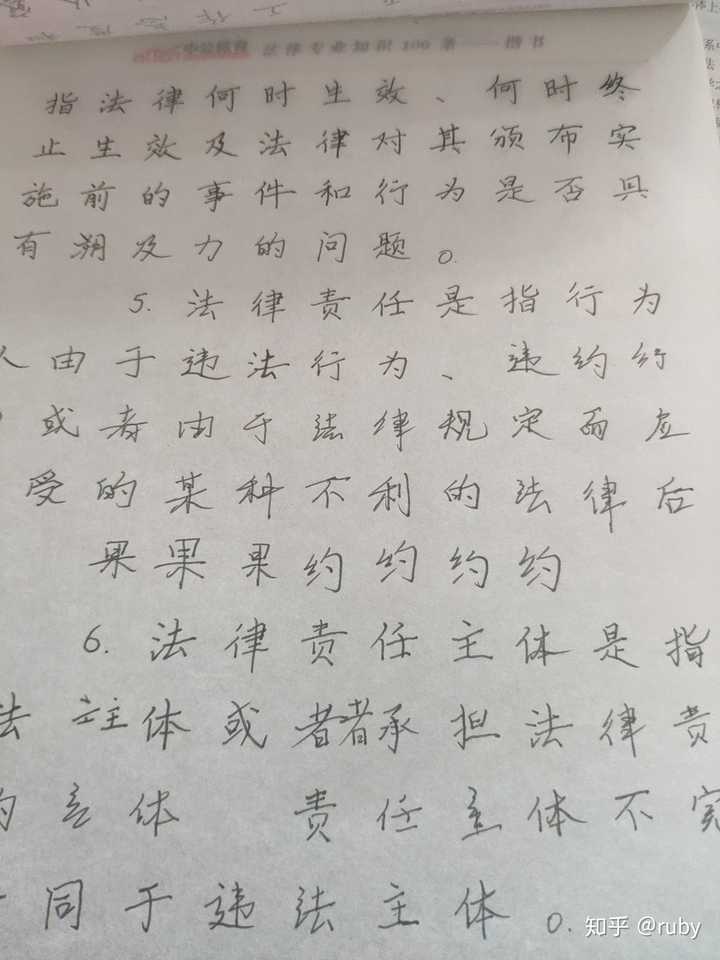 法律专业知识100条——楷书
指法律何时生效、何时终
止生效及法律对其颁布实
施前的事件和行为是否具
有朔及力的问题。
5.法律责任是指行为
人由于违法行为、违约行
或者由于法律规定而应
受的某种不利的法律后
果果果约约约约
6.法律责任主体是指
法主体或者者承担法律责
的主体 责任主体不完
同于违法主体。
知乎 @ruby